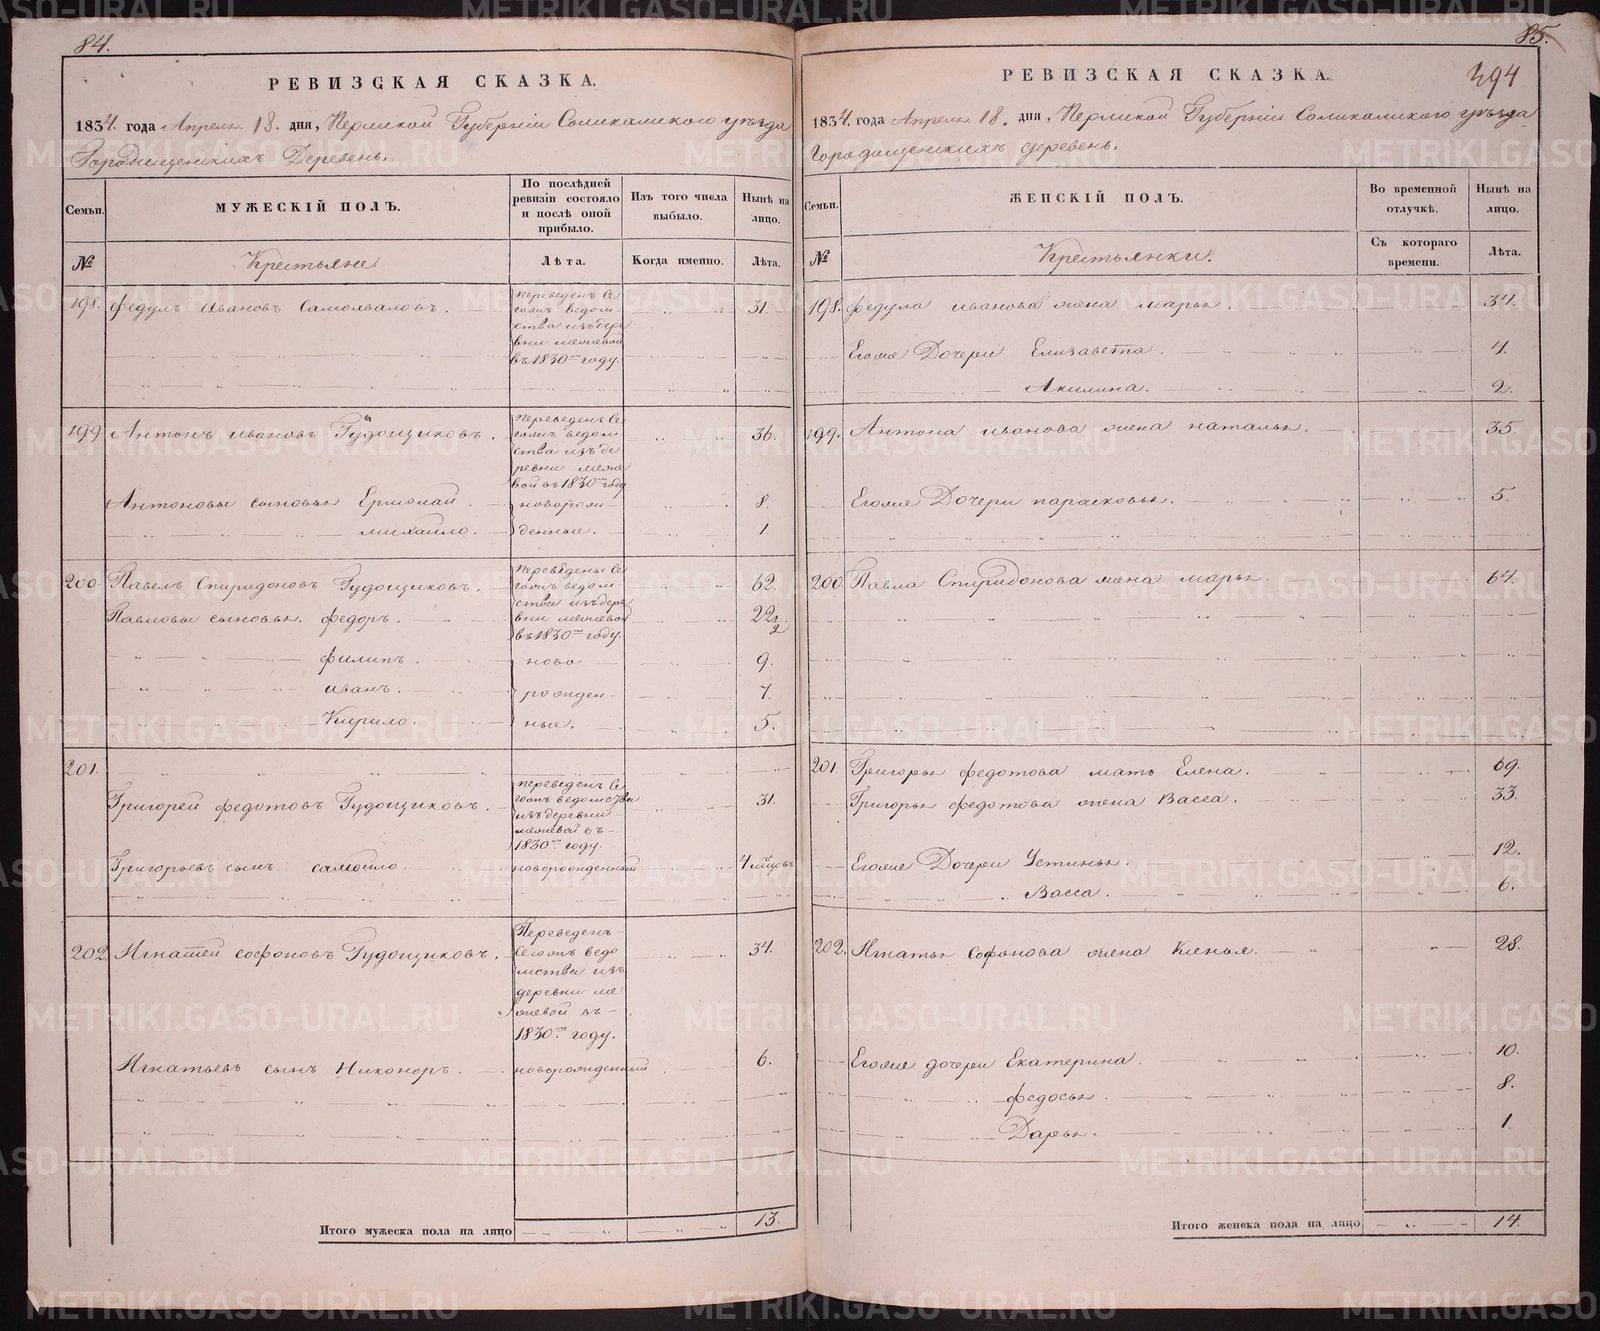 84.
РЕВИЗСКАЯ СКАЗКА.
1834. года Апреля 18. дня, Пермской Губернiи Соликамского уѣзда
Городищенскихъ Деревень.
Семьи.
МУЖЕСКIЙ ПОЛЪ.
По послѣдней ревизiи состояло и послѣ оной прибыло.
Изъ того числа выбыло.
Нынѣ на лицо.
№
Крестьяне
Лѣта.
Когда именно.
Лѣта.
198. Федулъ Ивановъ Самохваловъ. 31.
переведенъ Се
гожъ ведом
ства изъ дере
вни межевой
въ 1830мъ году.
199 Антонъ Ивановъ Гудощиковъ. 36.
переведенъ Се
гожъ ведом
ства изъ де
ревни меже
вой въ 1830мъ году
Антоновы сыновья Ермолай новорож- 8.
михайло. денные. 1.
200. Павелъ Спиридоновъ Гудощиковъ. 62.
переведены Се
гожъ ведом
ства изъ дере
вни межевой
въ 1830мъ году.
Павловы сыновья. федоръ. 22 1/2
филипъ. ново 9.
иванъ. рожден- 7.
Кирило. ные. 5.
201.
Григорей федотовъ Гудощиковъ. 31.
переведенъ Се
гожъ ведомства
изъ деревни
межевой въ
1830мъ году.
Григорьевъ сынъ самойло. новорожденный 4 мѣсяцовъ
202. Игнатей софоновъ Гудощиковъ. 34.
Переведенъ
Сегожъ ведо
мства изъ
деревни ме
жевой въ
1830мъ году.
Игнатьевъ сынъ Никоноръ. новорожденный 6.
Итого мужеска пола на лицо 13.
85.
394
РЕВИЗСКАЯ СКАЗКА.
1834. года Апреля 18. дня, Пермской Губернiи Соликамского уѣзда
Городищенскихъ деревень.
Семьи.
ЖЕНСКIЙ ПОЛЪ.
Во временной отлучкѣ.
Нынѣ на лицо.
№
Крестьянки.
Съ котораго времени.
Лѣта.
198. федула иванова жена марья. 34.
Егожъ Дочери Елизавета. 4.
Акилина. 2.
199. Антона иванова жена наталья. 35
Егожъ Дочери парасковья. 5.
200. Павла Спиридонова жена марья. 64.
201. Григорья федотова мать Елена. 69.
Григорья федотова жена Васса. 33.
Егожъ Дочери Устинья. 12.
Васса. 6.
202. Игнатья Софонова жена Ксенья. 28.
Егожъ дочери Екатерина. 10.
федосья. 8.
Дарья. 1
Итого женска пола на лицо 14
METRIKI.GASO-URAL.RU